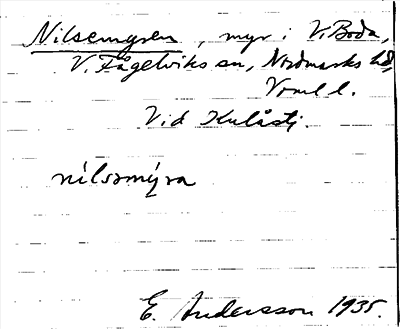 Nilsemyren, myr i V. Boda,
V. Fågelviks sn, Nordmarks hd,
Vrml l.
Vid Kulåstj.
nilsəmýra
E. Andersson 1935.